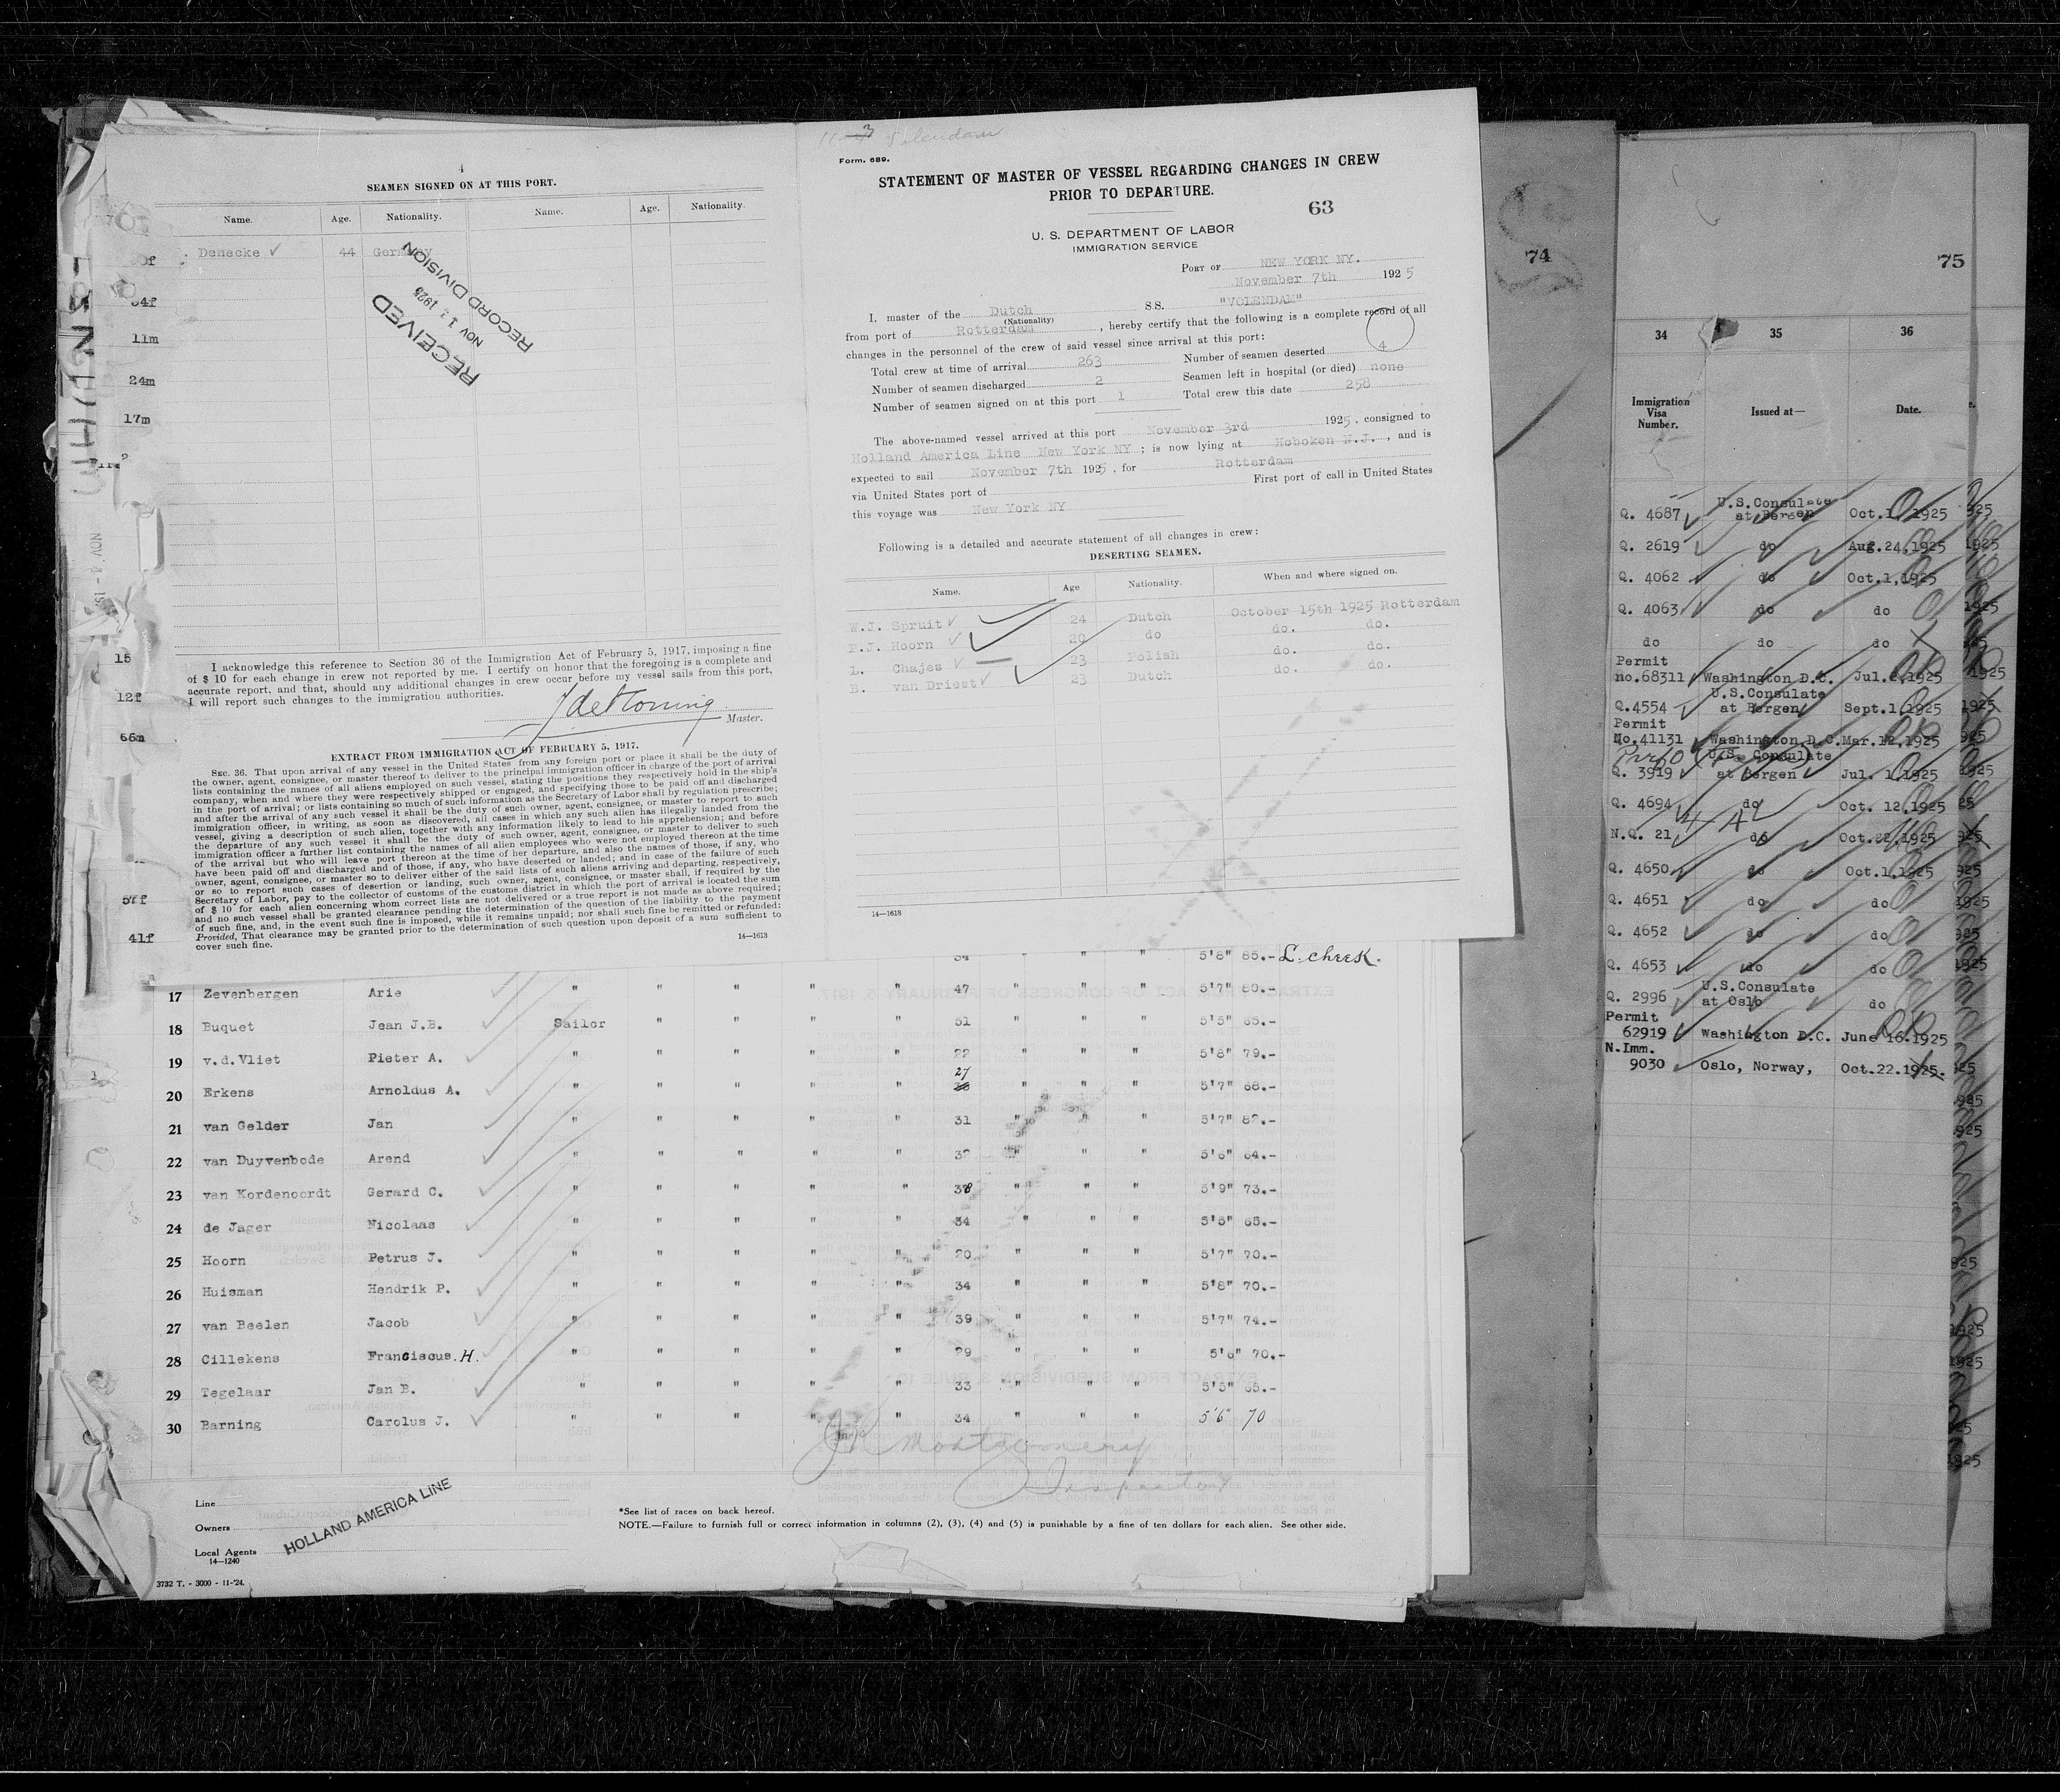 4
SEAMEN SIGNED ON AT THIS PORT.
Name. Age. Nationality. Name. Age. Nationality.
Denecke 44 Germany
RECEIVED
NOV 1925
RECORD DIVISION
I acknowledge this reference to Section 36 of the Immigration Act of February 5, 1917, imposing a fine
of $ 10 for each change in crew not reported by me. I certify on honor that the foregoing is a complete and
accurate report, and that, should any additional changes in crew occur before my vessel sails from this port,
I will report such changes to the immigration authorities.
Master.
EXTRACT FROM IMMIGRATION ACT OF FEBRUARY 5, 1917.
SEC. 36. That upon arrival of any vessel in the United States from any foreign port or place it shall be the duty of
the owner, agent, consignee, or master thereof to deliver to the principal immigration officer in charge of the port of arrival
lists containing the names of all aliens employed on such vessel, stating the positions they respectively hold in the ship's
company, when and where they were respectively shipped or engaged, and specifying those to be paid off and discharged
in the port of arrival; or lists containing so much of such information as the Secretary of Labor shall by regulation prescribe;
and after the arrival of any such vessel it shall be the duty of such owner, agent, consignee, or master to report to such
immigration officer, in writing, as soon as discovered, all cases in which any such alien has illegally landed from the
vessel, giving a description of such alien, together with any information likely to lead to his apprehension; and before
the departure of any such vessel it shall be the duty of such owner, agent, consignee, or master to deliver to such
immigration officer a further list containing the names of all alien employees who were not employed thereon at the time
of the arrival but who will leave port thereon at the time of her departure, and also the names of those, if any, who
have been paid off and discharged and of those, if any, who have deserted or landed; and in case of the failure of such
owner, agent, consignee, or master so to deliver either of the said lists of such aliens arriving and departing, respectively,
or so to report such cases of desertion or landing, such owner, agent, consignee, or master shall, if required by the
Secretary of Labor, pay to the collector of customs of the customs district in which the port of arrival is located the sum
of $ 10 for each alien concerning whom correct lists are not delivered or a true report is not made as above required;
and no such vessel shall be granted clearance pending the determination of the question of the liability to the payment
of such fine, and, in the event such fine is imposed, while it remains unpaid; nor shall such fine be remitted or refunded:
Provided, That clearance may be granted prior to the determination of such question upon deposit of a sum sufficient to
cover such fine.
14—1613
Form. 689.
STATEMENT OF MASTER OF VESSEL REGARDING CHANGES IN CREW
PRIOR TO DEPARTURE.
63
U. S. DEPARTMENT OF LABOR
IMMIGRATION SERVICE
PORT OF NEW YORK NY.
November 7th 1925
I, master of the Dutch S.S. "VOLENDAM"
(Nationality)
from port of Rotterdam, hereby certify that the following is a complete record of all
changes in the personnel of the crew of said vessel since arrival at this port:
Total crew at time of arrival 263 Number of seamen deserted 4
Number of seamen discharged 2 Seamen left in hospital (or died) none
Number of seamen signed on at this port 1 Total crew this date 258
The above-named vessel arrived at this port November 3rd 1925, consigned to
Holland America Line New York NY; is now lying at Hoboken N.J., and is
expected to sail November 7th 1925, for Rotterdam
via United States port of First port of call in United States
this voyage was New York NY
Following is a detailed and accurate statement of all changes in crew:
DESERTING SEAMEN.
Name. Age Nationality. When and where signed on.
W.J. Spruit 24 Dutch October 15th 1925 Rotterdam
P.J. Hoorn 20 do do. do.
L. Chajes 23 Polish do. do.
B. van Driest 23 Dutch do. do.
14—1618
5'8" 85.- L. cheek.
17 Zevenbergen Arie " " " " 47 " " " 5'7" 80.-
18 Buquet Jean J.B. Sailor " " " " 51 " " " 5'5" 65.-
19 v.d.Vliet Pieter A. " " " " " 22 " " " 5'8" 79.-
20 Erkens Arnoldus A. " " " " " 27 " " " 5'7" 68.-
21 van Gelder Jan " " " " " 31 " " " 5'7" 82.-
22 van Duyvenbode Arend " " " " " 32 " " " 5'6" 64.-
23 van Kordenoordt Gerard C. " " " " " 38 " " " 5'9" 73.-
24 de Jager Nicolaas " " " " " 34 " " " 5'5" 65.-
25 Hoorn Petrus J. " " " " " 20 " " " 5'7" 70.-
26 Huisman Hendrik P. " " " " " 34 " " " 5'8" 70.-
27 van Beelen Jacob " " " " " 39 " " " 5'7" 74.-
28 Cillekens Franciscus. H. " " " " " 29 " " " 5'6" 70.-
29 Tegelaar Jan B. " " " " " 33 " " " 5'5" 65.-
30 Barning Carolus J. " " " " " 34 " " " 5'6" 70
Montgomery
Inspector
Line
Owners
Local Agents
HOLLAND AMERICA LINE
14—1240
*See list of races on back hereof.
NOTE.—Failure to furnish full or correct information in columns (2), (3), (4) and (5) is punishable by a fine of ten dollars for each alien. See other side.
3732 T. - 3000 - 11-'24.
04f
11m
24m
17m
15
12f
66m
57f
41f
74
75
34 35 36
Immigration Visa Number. Issued at— Date.
Q. 4687 U.S.Consulate at Bergen Oct.1,1925
Q. 2619 do Aug.24,1925
Q. 4062 do Oct.1,1925
Q. 4063 do do
do do do
Permit
no.68311 Washington D.C. Jul. 1925
Q.4554 U.S.Consulate at Bergen Sept.1,1925
Permit
No.41131 Washington D.C. Mar.12,1925
Q. 3919 U.S. Consulate at Bergen Jul. 1,1925
Q. 4694 do Oct. 12,1925
N.Q. 21 do Oct.22,1925
Q. 4650 do Oct.1,1925
Q. 4651 do do
Q. 4652 do do
Q. 4653 do do
Q. 2996 U.S.Consulate at Oslo do
Permit
62919 Washington D.C. June 16.1925
N.Imm.
9030 Oslo, Norway, Oct.22.1925.